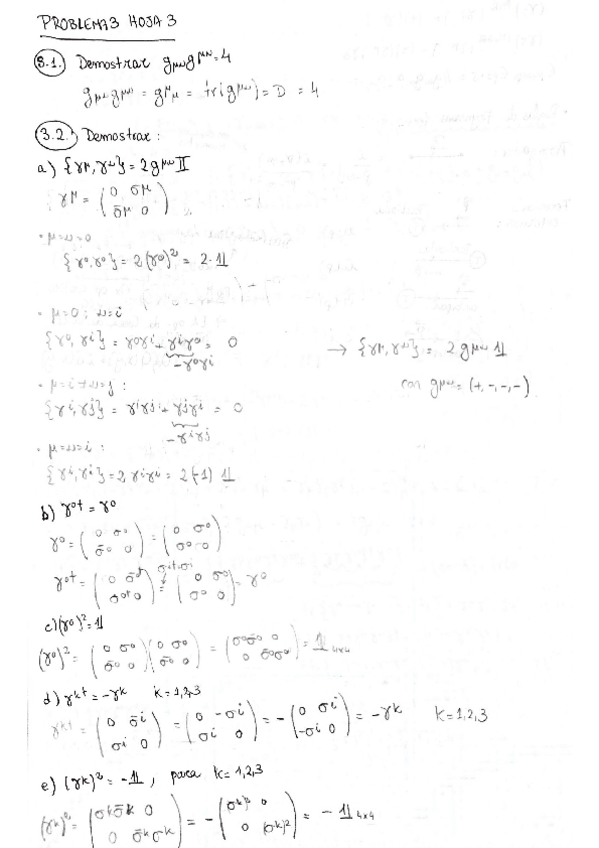 PROBLEMAS HOJA 3
3.1. Demostrar g_{μν}g^{μν}=4
g_{μν}g^{μν} = g^μ_μ = tr(g^{μν}) = D = 4
3.2. Demostrar:
a) {γ^μ, γ^ν} = 2g^{μν} 𝟙
γ^μ = (0 σ^μ; σ̄^μ 0)
· μ=ν=0
{γ⁰, γ⁰} = 2(γ⁰)² = 2·𝟙
· μ=0; ν=i
{γ⁰, γ^i} = γ⁰γ^i + γ^iγ⁰ = 0
-γ⁰γ^i
→ {γ^μ, γ^ν} = 2g^{μν} 𝟙
con g^{μν} = (+,-,-,-)
· μ=i ≠ ν=j :
{γ^i, γ^j} = γ^iγ^j + γ^jγ^i = 0
-γ^iγ^j
· μ=ν=i :
{γ^i, γ^i} = 2γ^iγ^i = 2(-1) 𝟙
b) γ^{0†} = γ⁰
γ⁰ = (0 σ⁰; σ̄⁰ 0) = (0 σ⁰; σ⁰ 0)
γ^{0†} = (0 σ̄^{0†}; σ^{0†} 0) = (0 σ⁰; σ⁰ 0) = γ⁰
σ^{i†}=σ^i
c) (γ⁰)² = 𝟙
(γ⁰)² = (0 σ⁰; σ̄⁰ 0)(0 σ⁰; σ̄⁰ 0) = (σ⁰σ̄⁰ 0; 0 σ̄⁰σ⁰) = 𝟙_{4x4}
d) γ^{k†} = -γ^k K=1,2,3
γ^{k†} = (0 σ̄^i; σ^i 0) = (0 -σ^i; σ^i 0) = -(0 σ^i; -σ^i 0) = -γ^k K=1,2,3
e) (γ^k)² = -𝟙, para k=1,2,3
(γ^k)² = (σ^kσ̄^k 0; 0 σ̄^kσ^k) = -((σ^k)² 0; 0 (σ^k)²) = -𝟙_{4x4}